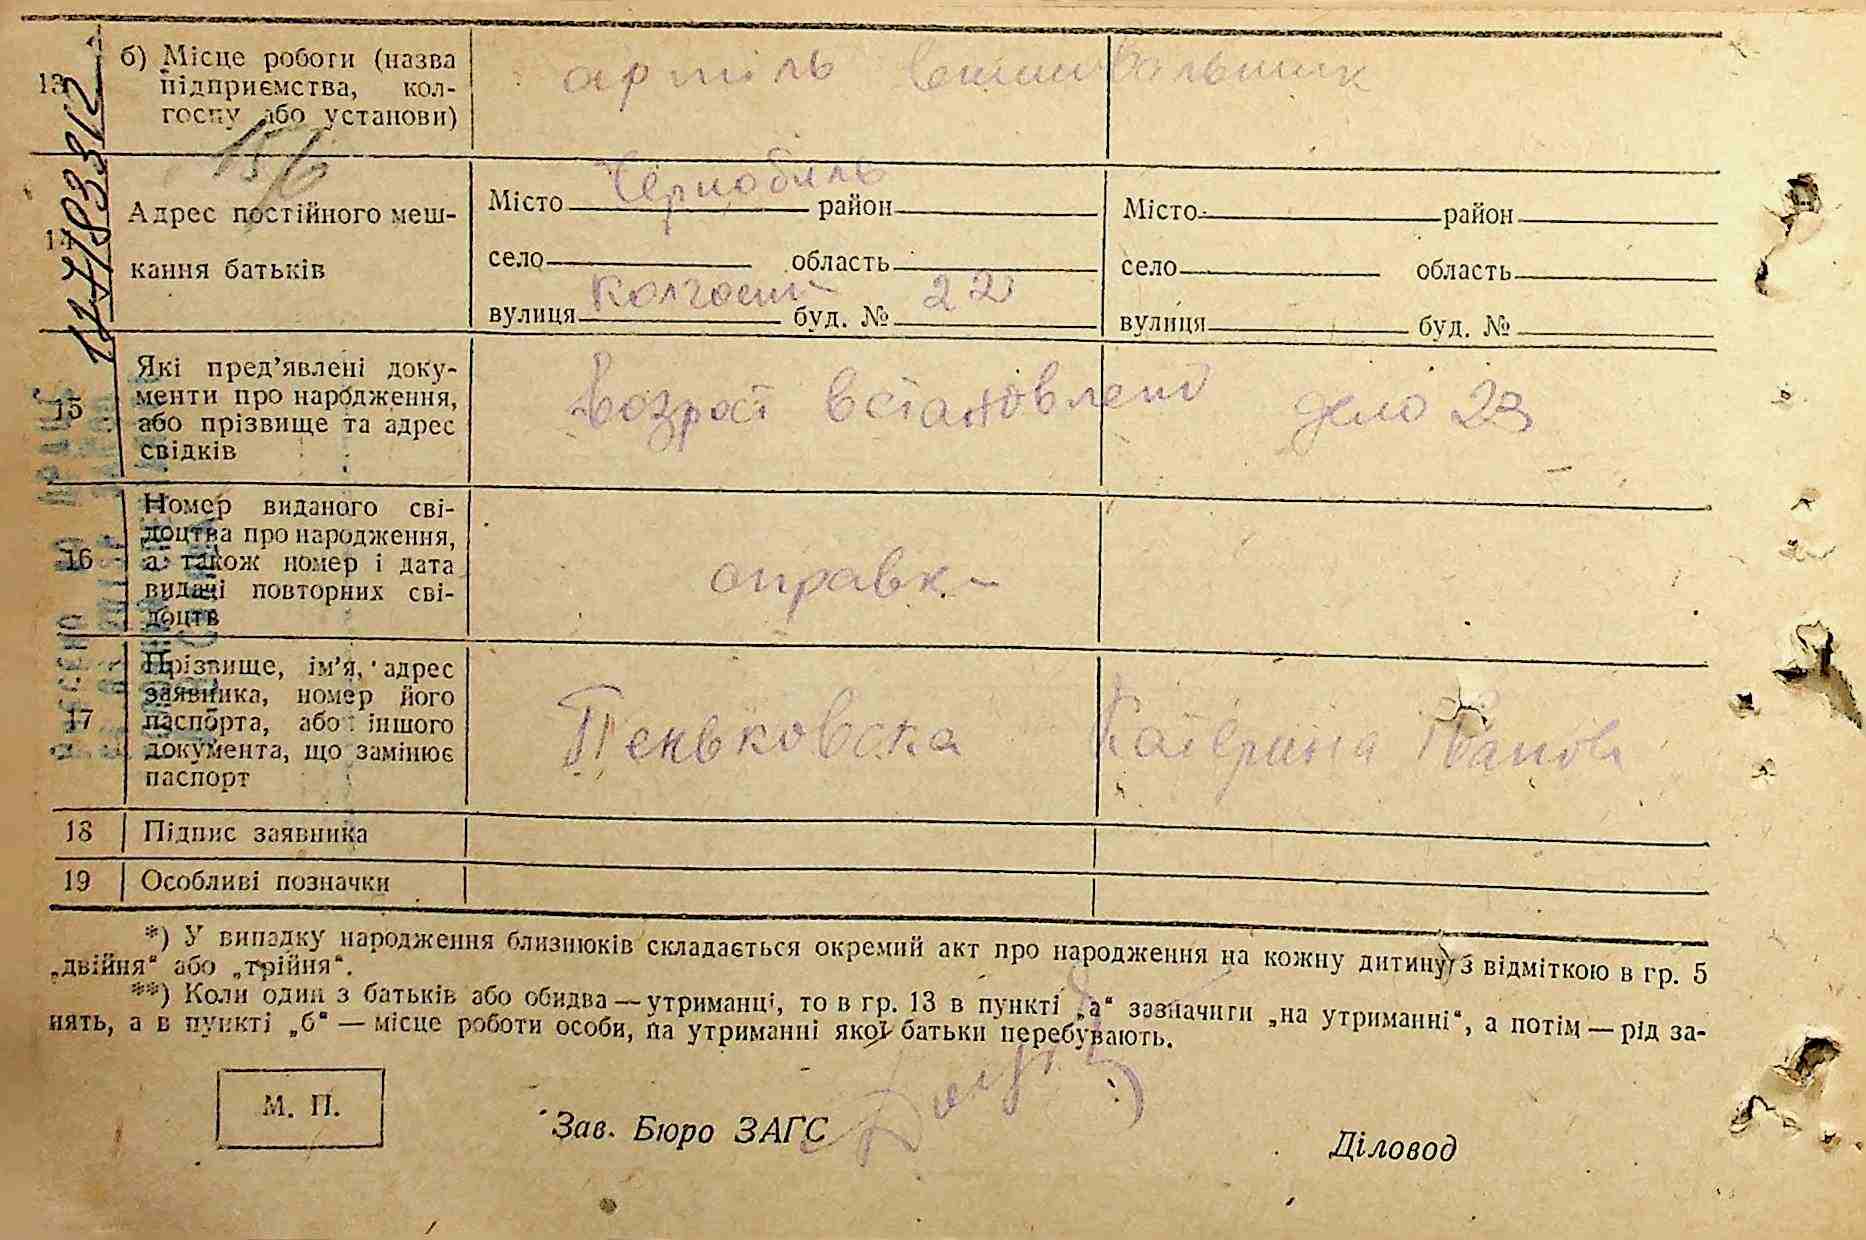 13 б) Місце роботи (назва
підприємства, кол-
госпу або установи)
артіль
1778332
15/6
14 Адрес постійного меш-
кання батьків
Місто Чернобиль район
село область
вулиця буд. № 22
Місто район
село область
вулиця буд. №
15 Які пред’явлені доку-
менти про народження,
або прізвище та адрес
свідків
Возраст встановлено дело 23
16 Номер виданого сві-
доцтва про народження,
а також номер і дата
видачі повторних сві-
доцтв
17 Прізвище, ім’я, адрес
заявника, номер його
паспорта, або іншого
документа, що замінює
паспорт
Пеньковска Катерина Іванов
18 Підпис заявника
19 Особливі позначки
*) У випадку народження близнюків складається окремий акт про народження на кожну дитину з відміткою в гр. 5
„двійня“ або „трійня“.
**) Коли один з батьків або обидва — утриманці, то в гр. 13 в пункті „а“ зазначити „на утриманні“, а потім — рід за-
нять, а в пункті „б“ — місце роботи особи, на утриманні якої батьки перебувають.
М. П.
Зав. Бюро ЗАГС
Діловод